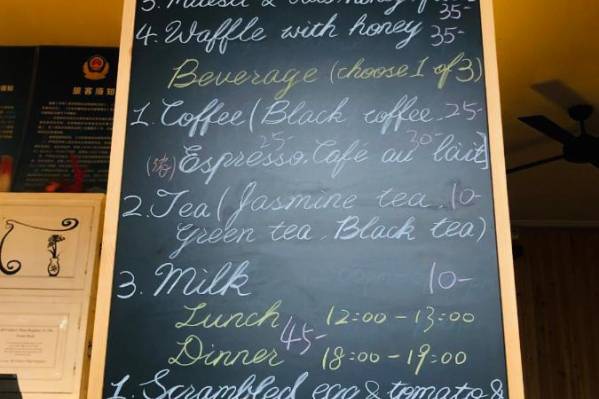 4. Waffle with honey 35-
Beverage (choose 1 of 3)
1. Coffee (Black coffee. 25-
25- 30-
Espresso. Café au lait]
2. Tea (Jasmine tea. 10-
Green tea. Black tea)
3. Milk 10-
Lunch 12:00 - 13:00
45-
Dinner 18:00 - 19:00
1. Scrambled egg & tomato &
旅客须知